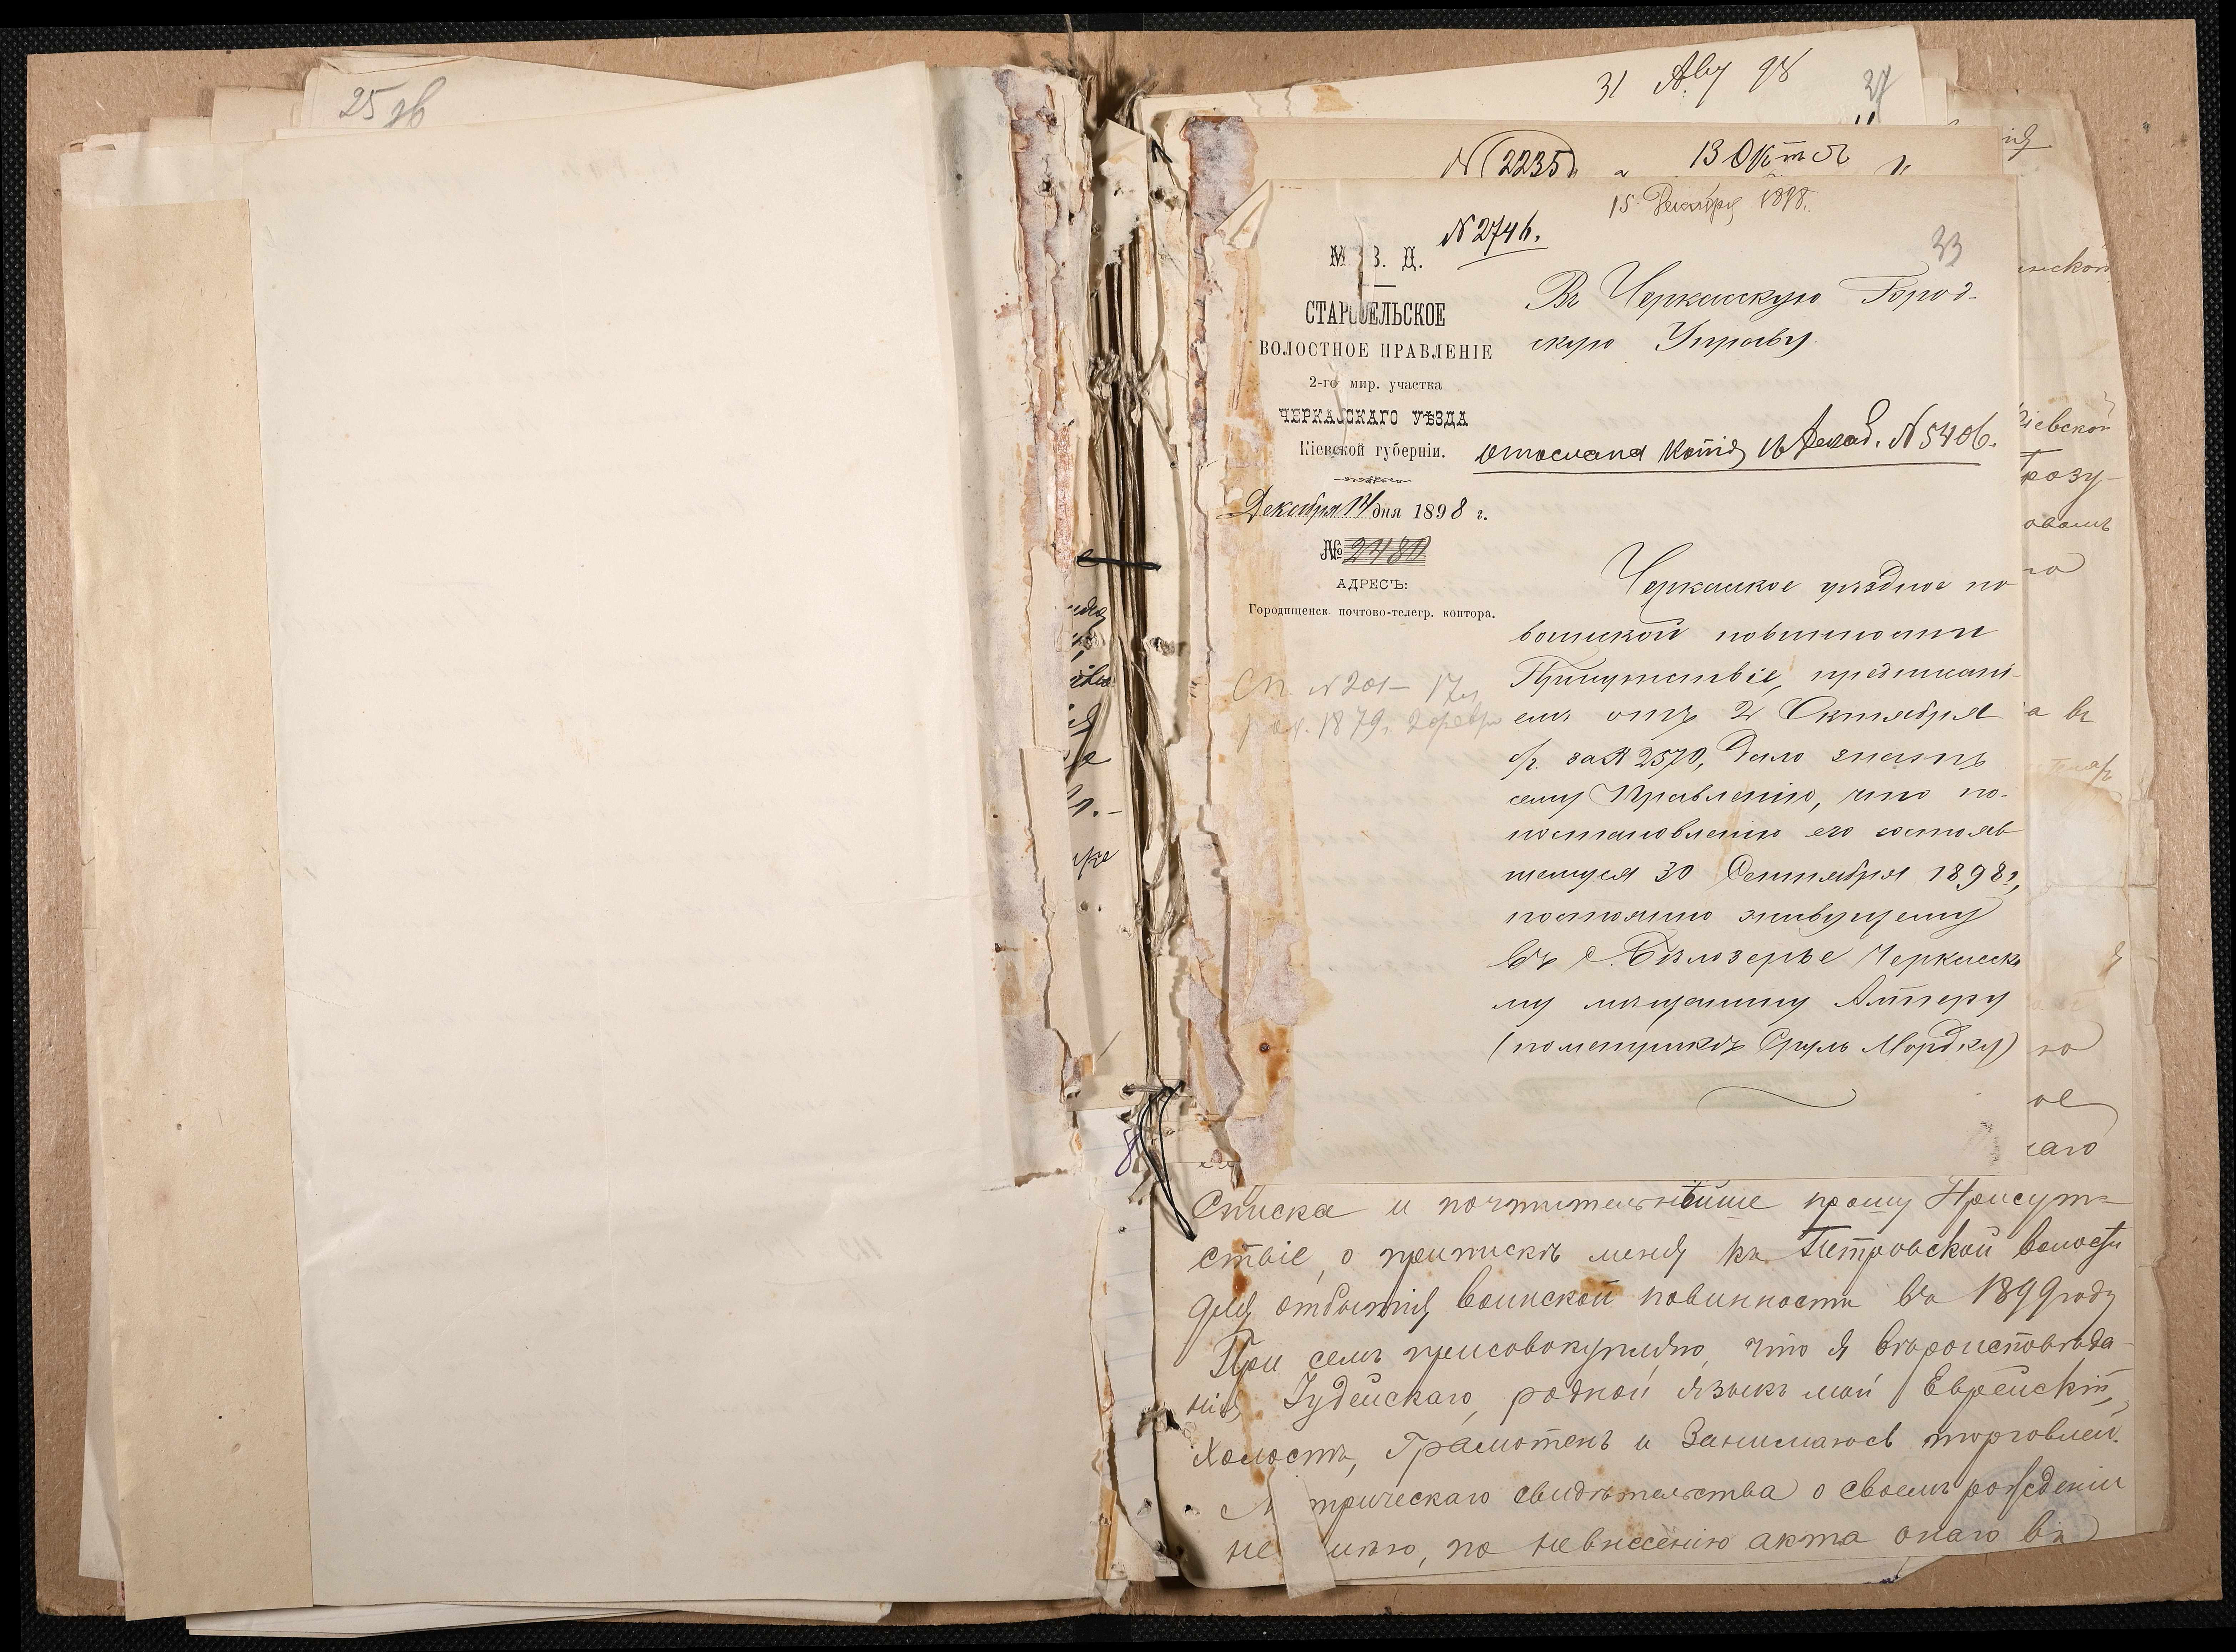 25 зв
31 Авг 98
27
№ 2235
13 Октяб
15 Декабря 1898.
№ 2746.
33
М. В. Д.
СТАРОСЕЛЬСКОЕ
ВОЛОСТНОЕ ПРАВЛЕНІЕ
2-го мир. участка
ЧЕРКАССКАГО УѢЗДА
Кіевской губерніи.
Декабря 14 дня 1898 г.
№ 2480
АДРЕСЪ:
Городищенск. почтово-телегр. контора.
Въ Черкасскую Город-
скую Управу.
отослана копія 16 Декаб. № 5406.
Сп. № 201 –
1879 г. 2 февр
Черкаское уѣздное по
воинской повинности
Присутствіе, предписані-
емъ отъ 2 Октября
с/г. за № 2570, дало знать
сему Правленію, что по-
постановленію его состояв
шемуся 30 Сентября 1898 г.,
постоянно живущему
въ с. Бѣлозерье Черкасско
му мѣщанину Алтеру
(по метрикѣ Сруль Мордку)
Списка и почтительнѣйше прошу Присут-
ствіе, о припискѣ меня къ Петровской волости
для отбытія воинской повинности въ 1899 году
При семъ присовокупляю, что я вѣроисповѣда-
нія Іудейскаго, родной языкъ мой Еврейскій,
Холостъ, Грамотенъ и Занимаюсь торговлей.
М трическаго свидѣтельства о своемъ рожденіи
не имѣю, по невнесенію акта онаго въ